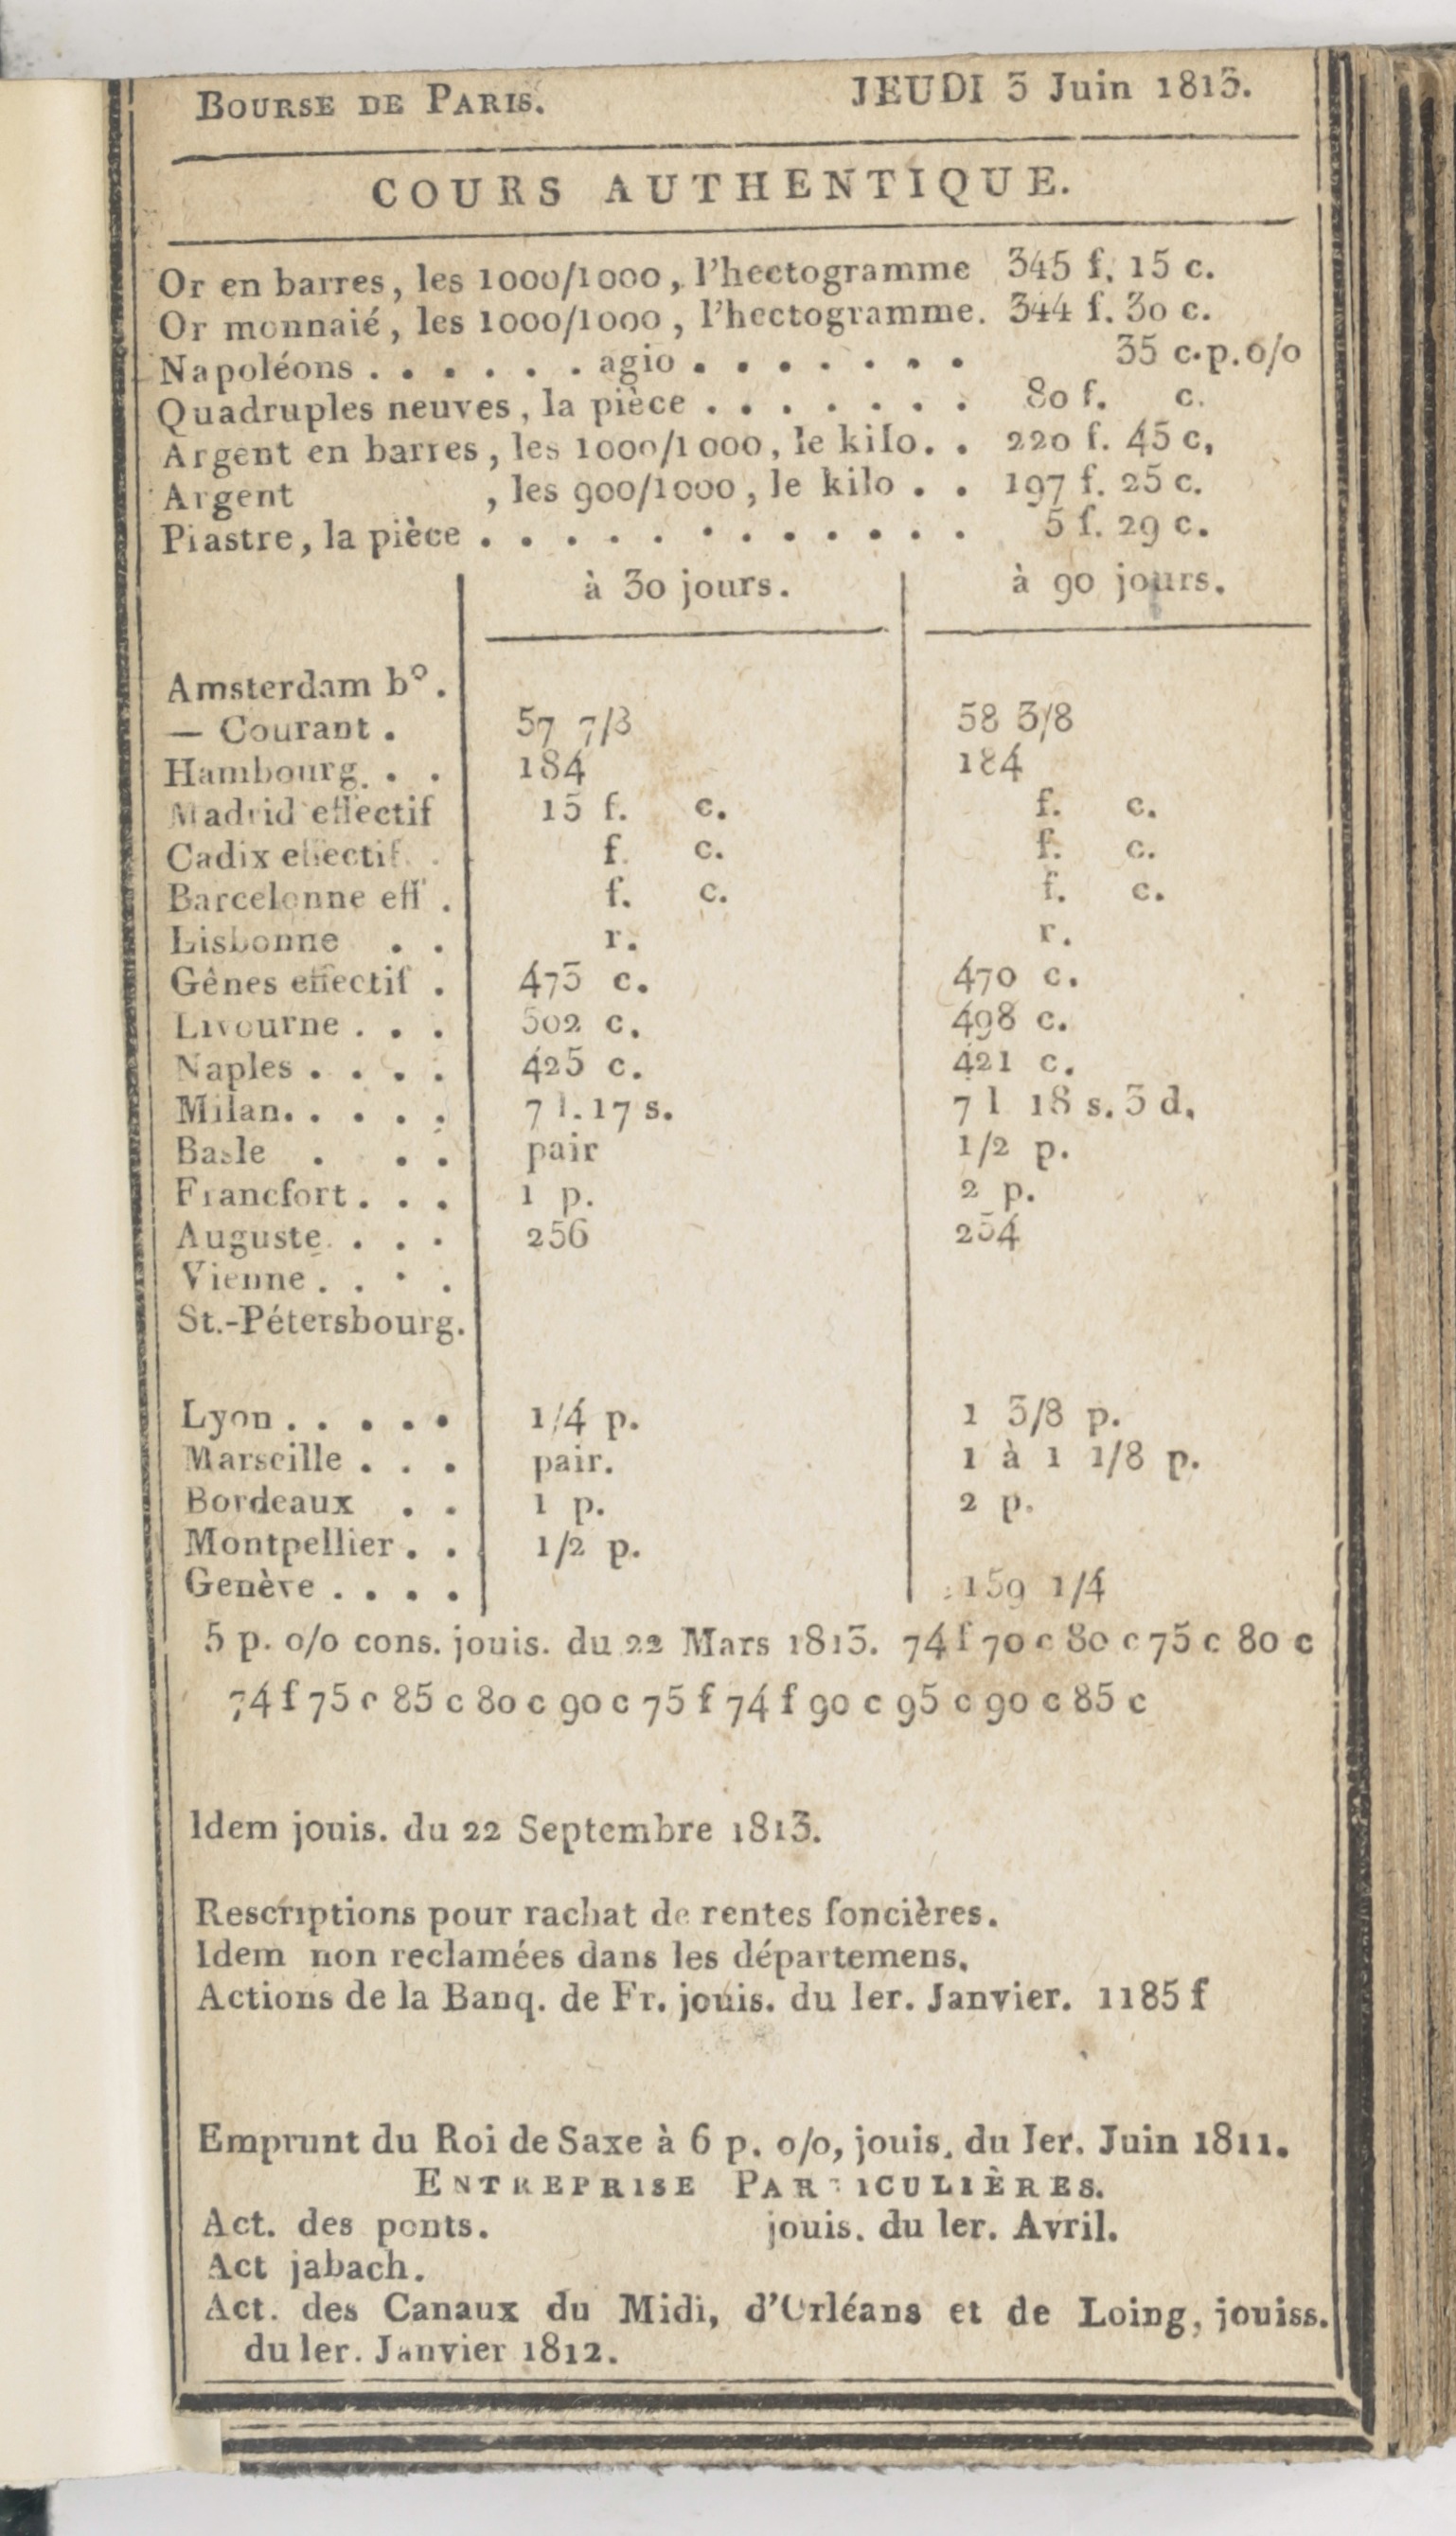 BOURSE DE PARIS. JEUDI 3 Juin 1813.
COURS AUTHENTIQUE.
Or en barres, les 1000/1000, l'hectogramme 345 f. 15 c.
Or monnaié, les 1000/1000, l'hectogramme. 344 f. 30 c.
Napoléons . . . . . . agio . . . . . . . 35 c. p. o/o
Quadruples neuves, la pièce . . . . . . . 80 f. c.
Argent en barres, les 1000/1000, le kilo. . 220 f. 45 c.
Argent , les 900/1000, le kilo . . 197 f. 25 c.
Piastre, la pièce . . . . . . . . . . . . 5 f. 29 c.
à 30 jours. à 90 jours.
Amsterdam b°.
— Courant . 57 7/8 58 3/8
Hambourg. . . 184 184
Madrid effectif 15 f. c. f. c.
Cadix effectif. . f. c. f. c.
Barcelonne eff . f. c. f. c.
Lisbonne . . r. r.
Gênes effectif . 475 c. 470 c.
Livourne . . . 502 c. 498 c.
Naples . . . . 425 c. 421 c.
Milan. . . . . 7 l. 17 s. 7 l 18 s. 3 d.
Basle . . . pair 1/2 p.
Francfort . . . 1 p. 2 p.
Auguste. . . . 256 254
Vienne . . . .
St.-Pétersbourg.
Lyon . . . . . 1/4 p. 1 3/8 p.
Marseille . . . pair. 1 à 1 1/8 p.
Bordeaux . . 1 p. 2 p.
Montpellier . . 1/2 p.
Genève . . . . 159 1/4
5 p. o/o cons. jouis. du 22 Mars 1813. 74 f 70 c 80 c 75 c 80 c
74 f 75 c 85 c 80 c 90 c 75 f 74 f 90 c 95 c 90 c 85 c
Idem jouis. du 22 Septembre 1813.
Rescriptions pour rachat de rentes foncières.
Idem non reclamées dans les départemens.
Actions de la Banq. de Fr. jouis. du 1er. Janvier. 1185 f
Emprunt du Roi de Saxe à 6 p. o/o, jouis. du 1er. Juin 1811.
ENTREPRISE PARTICULIÈRES.
Act. des ponts. jouis. du 1er. Avril.
Act jabach.
Act. des Canaux du Midi, d'Orléans et de Loing, jouiss.
du 1er. Janvier 1812.